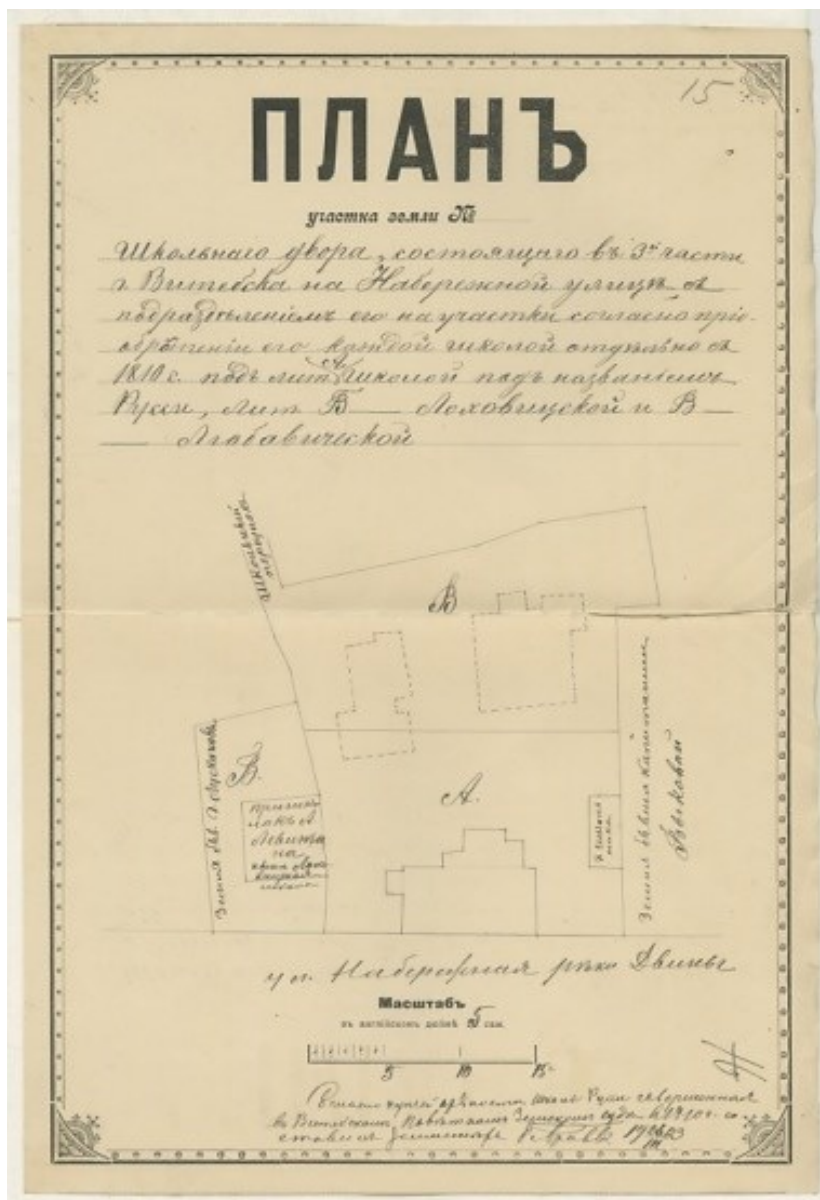 15
ПЛАНЪ
участка земли №
Школьнаго двора, состоящаго въ 3й части
г. Витебска на Набережной улицѣ съ
подраздѣленіемъ его на участки согласно пріо-
обрѣтеніи его каждой школой отдѣльно съ
1810 г. подъ лит. А школой подъ названіемъ
Русси, лит Б Лоховицской и В
Любавической
Школьный
В
Земля
В.
А.
Левита
на
Земля бывшая капитанши
Быковой
ул. Набережная рѣки Двины
Масштабъ
въ англійскомъ дюймѣ 5 саж.
5 10 15
школы Русси совершенной
въ Витебскомъ Земскомъ суда 1810 г. со-
ставилъ землемѣръ